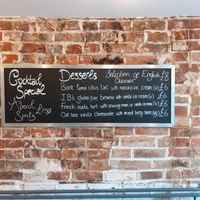 Cocktail
Special
Aperol
Spritz £7.50
Desserts
Selection of English £8
Cheeses
Burnt lemon citrus tart with mascarpone cream (v) £6
J.B's gluten free Brownie with vanilla ice cream (v) £6
French apple tart with pouring cream or vanilla ice cream (v) £6
Oat base vanilla cheesecake with mixed berry sauce (v) £6